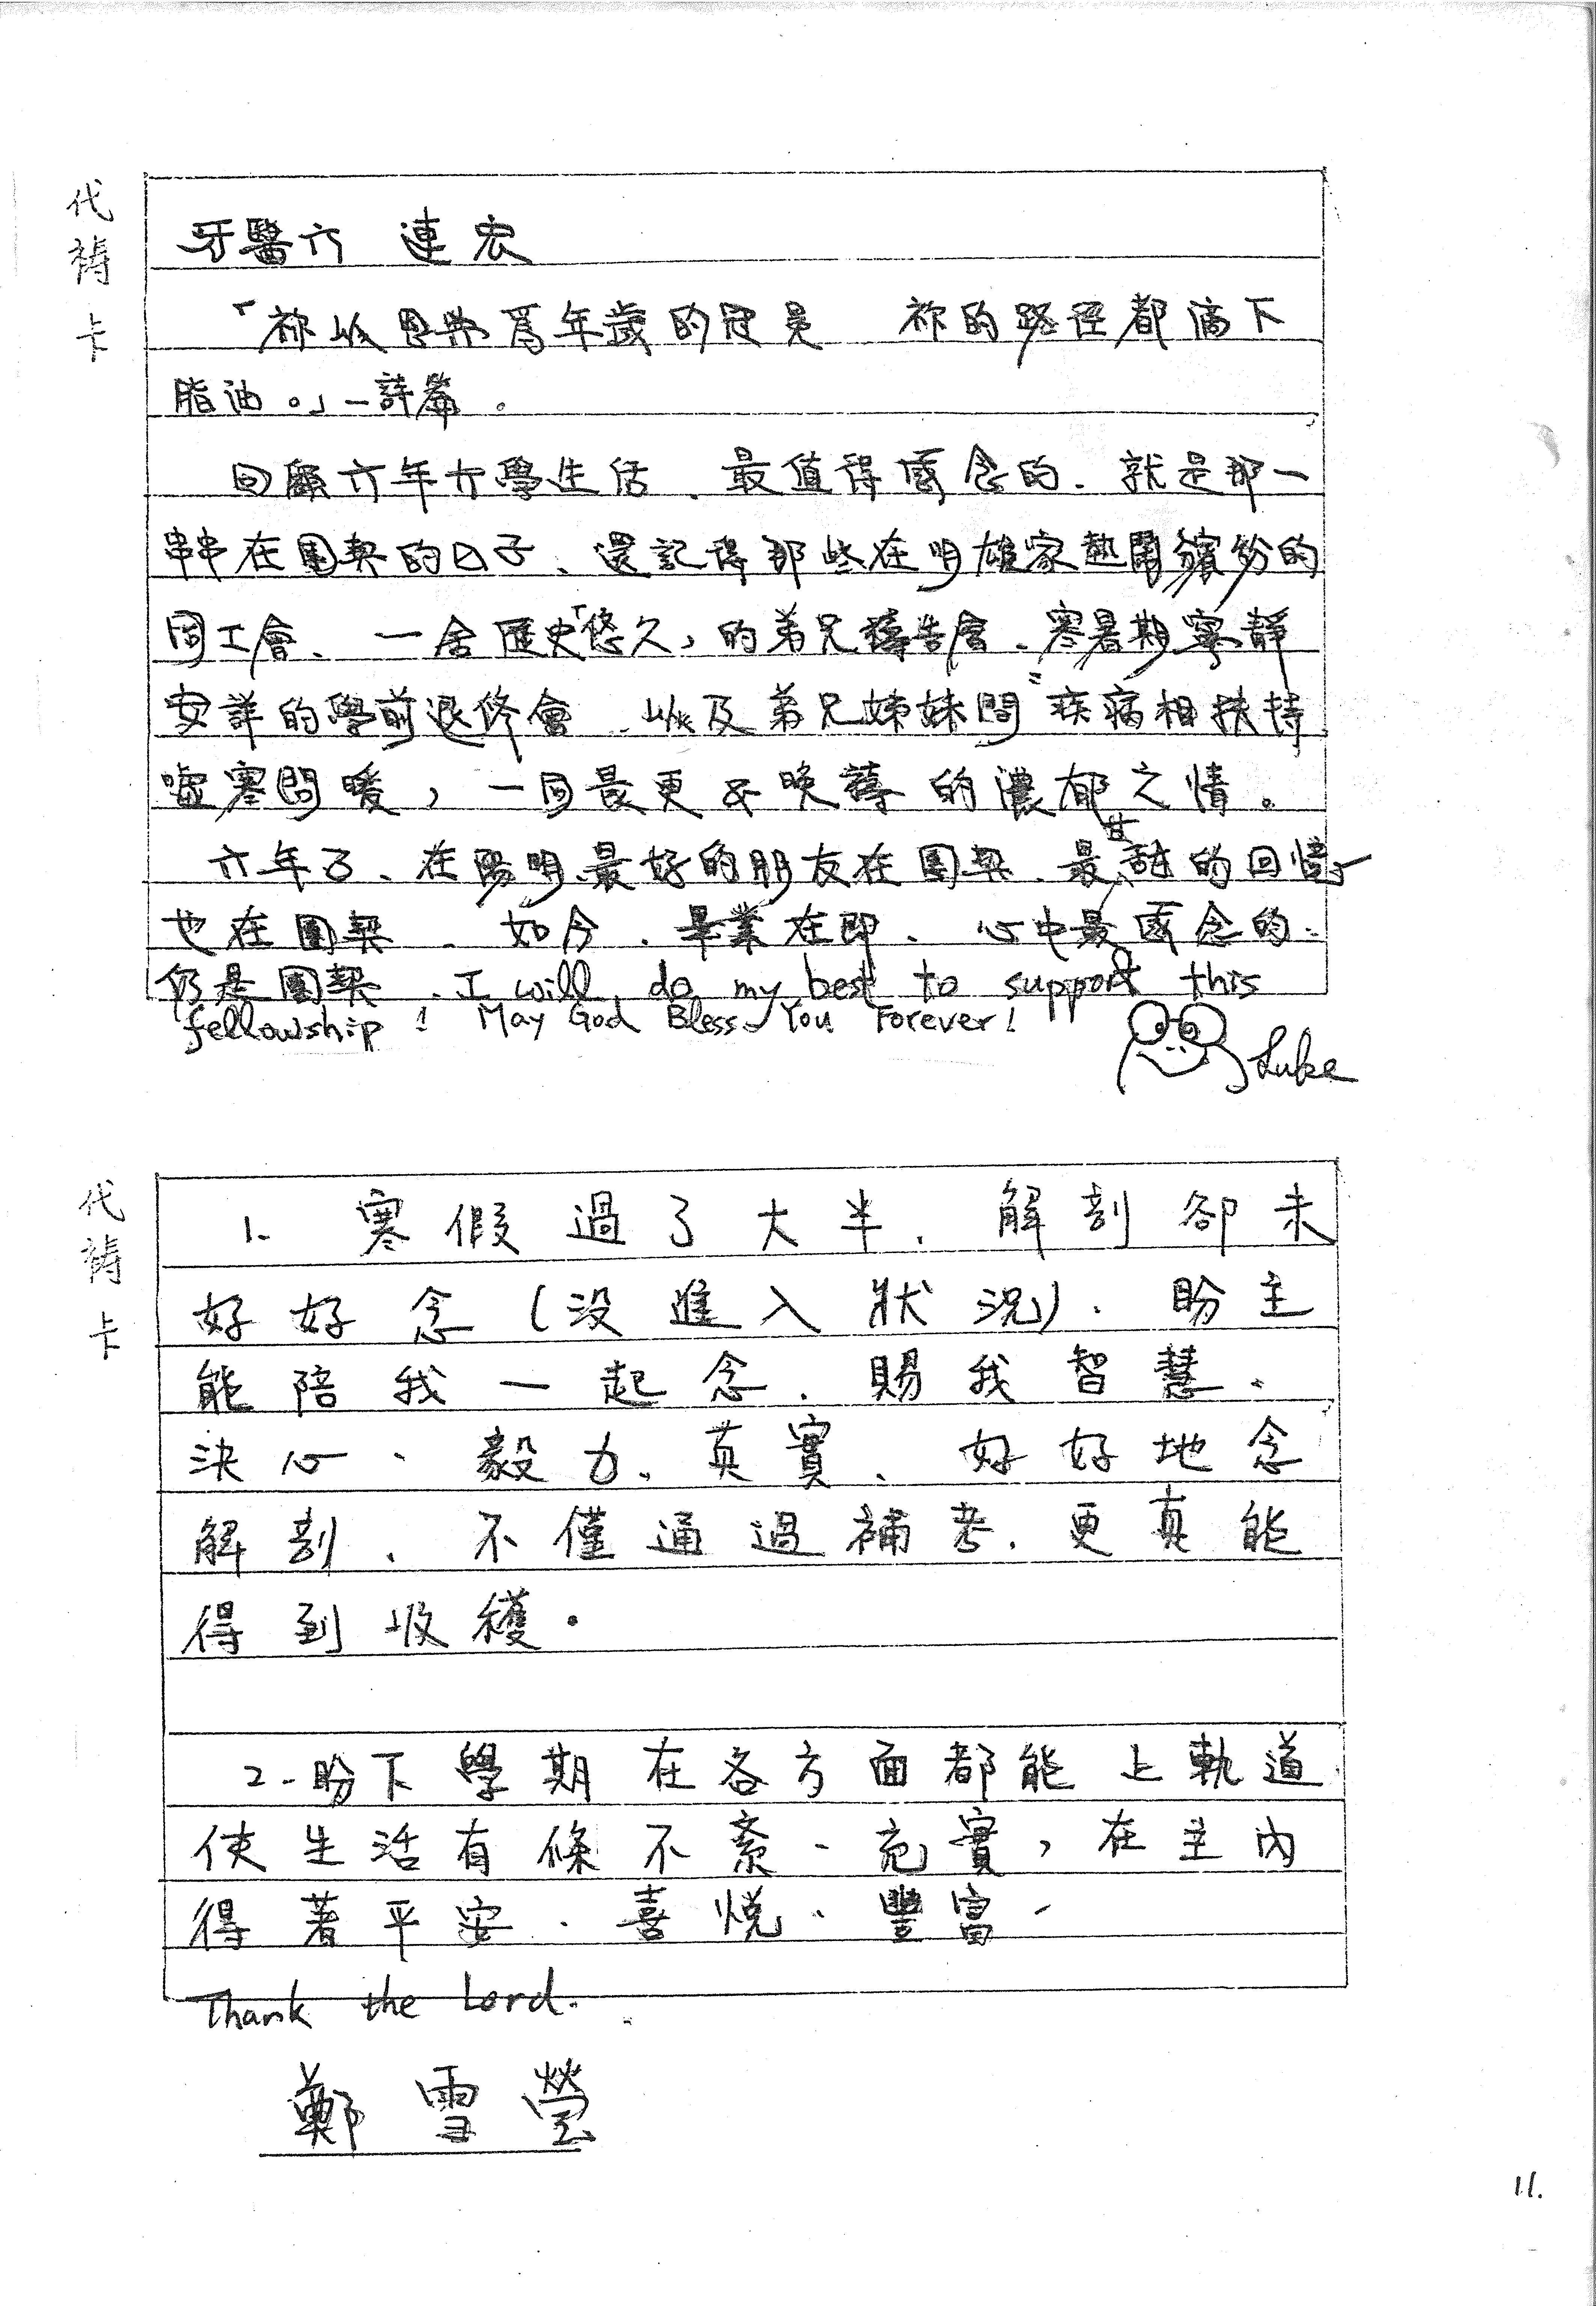 代禱卡
牙醫六 連宏
「祢以恩典為年歲的冠冕 祢的路徑都滴下
脂油。」—詩篇。
回顧六年大學生活、最值得感念的、就是那一
串串在團契的日子、還記得那些在明雄家熱鬧繽紛的
同工會、一舍歷史「悠久」的弟兄禱告會、寒暑期寧靜
安詳的學前退修會、以及弟兄姊妹間"疾病相扶持
噓寒問暖,一同晨更與晚禱的濃郁之情。
六年了、在陽明最好的朋友在團契、最甘甜的回憶
也在團契、如今、畢業在即、心中最感念的
仍是團契、I will do my best to support this
fellowship! May God Bless You Forever!
Luke
代禱卡
1. 寒假過了大半、解剖卻未
好好念(沒進入狀況)、盼主
能陪我一起念、賜我智慧、
決心、毅力、真實、好好地念
解剖、不僅通過補考、更真能
得到收穫.
2. 盼下學期在各方面都能上軌道
使生活有條不紊、充實,在主內
得著平安、喜悅、豐富、
Thank the Lord.
鄭雪瑩
11.